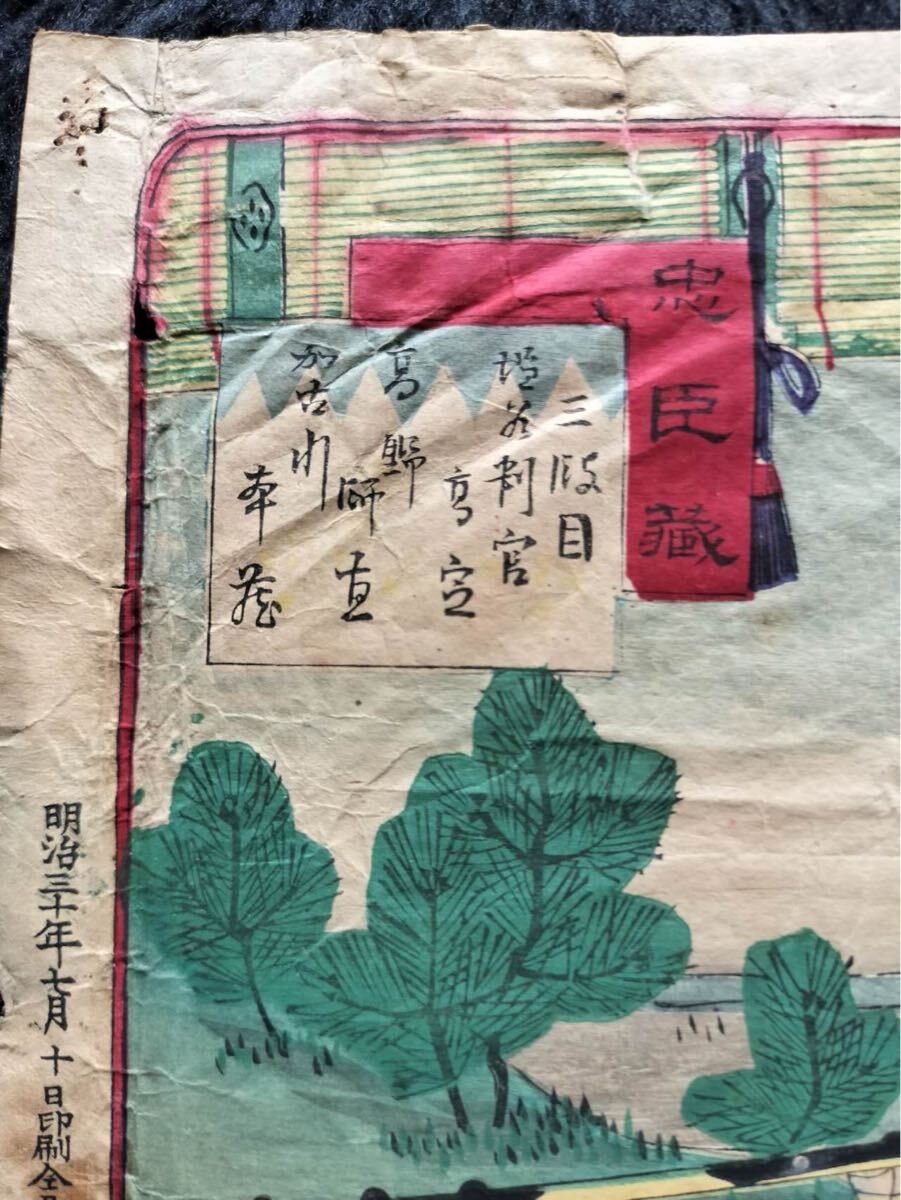 忠臣藏
三段目
塩谷判官
高定
高師
師直
加古川
本蔵
明治三十年七月十日印刷仝